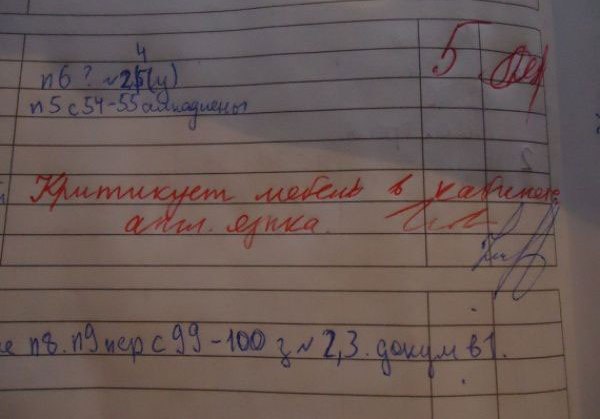 п6? №24(ц)
п5 с54-55 алкадиены
5
Критикует мебель в кабинете
англ. языка.
е п8. п9 пер с 99-100 з№2,3. докум в1.